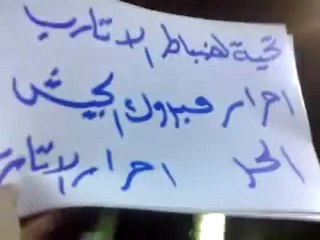 تحية لضباط الاتارب
احرار مبروك الجيش
الحر احرار الاتار